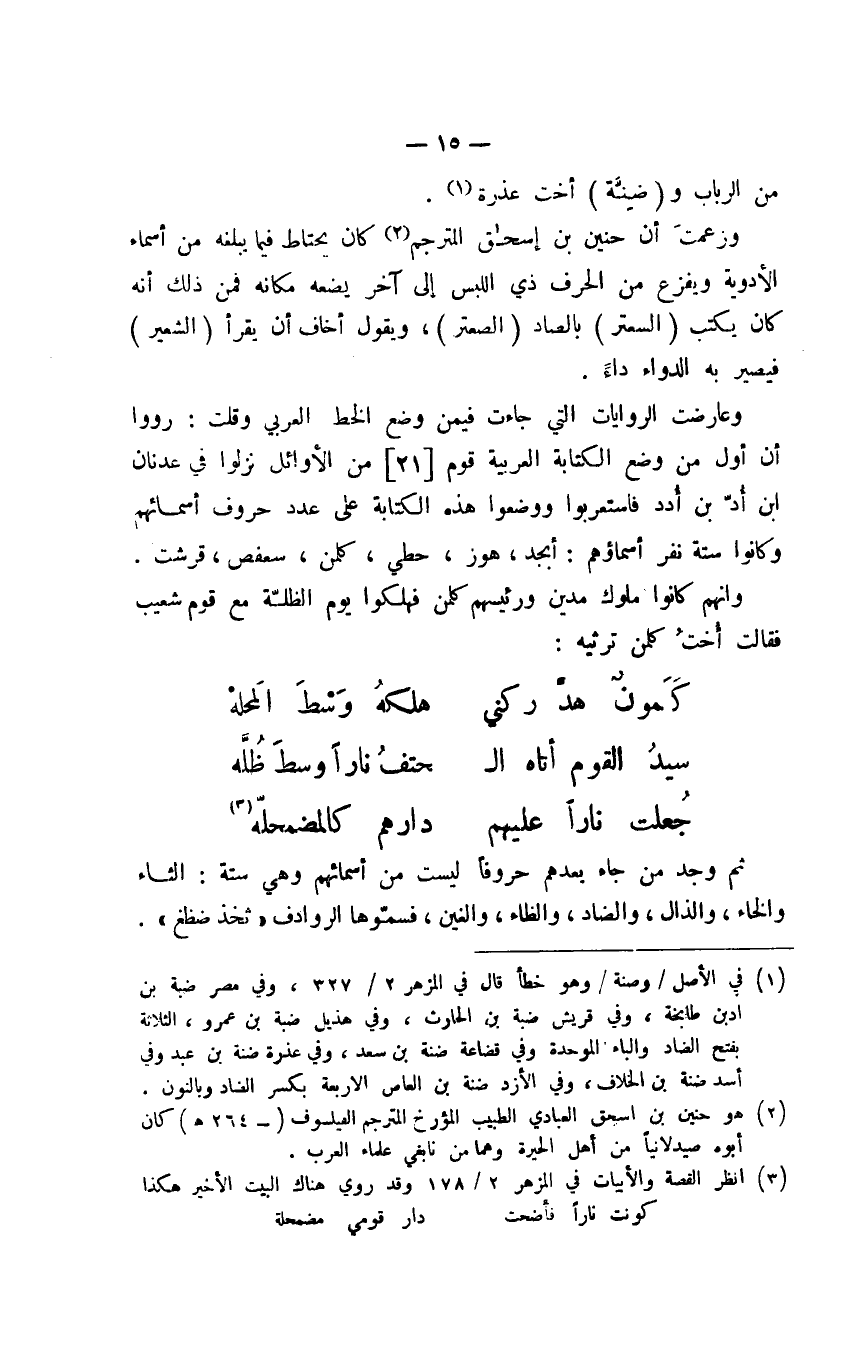 — ١٥ —
من الرباب و ( ضينَّة ) أخت عذرة (١) .
وزعمتَ أن حنين بن إسحٰق المترجم(٢) كان يحتاط فيما يبلغه من أسماء
الأدوية ويفزع من الحرف ذي اللبس إلى آخر يضعه مكانه فمن ذلك أنه
كان يكتب ( السعتر ) بالصاد ( الصعتر ) ، ويقول أخاف أن يقرأ ( الشعير )
فيصير به الدواء داءً .
وعارضت الروايات التي جاءت فيمن وضع الخط العربي وقلت : رووا
أن أول من وضع الكتابة العربية قوم [٢١] من الأوائل نزلوا في عدنان
ابن أُدّ بن أُدد فاستعربوا ووضعوا هذه الكتابة على عدد حروف أسمـائهم
وكانوا ستة نفر أسماؤهم : أبجد ، هوز ، حطي ، كلمن ، سعفص ، قرشت .
وانهم كانوا ملوك مدين ورئيسهم كلمن فهلكوا يوم الظلـّة مع قوم شعيب
فقالت أُختُ كلمن ترثيه :
كَلَمونٌ هدَّ ركني هلكهُ وَسْطَ المحلهْ
سيدُ القوم أتاه الـ حتفُ ناراً وسطَ ظُلَّه
جُعلت ناراً عليهم دارهم كالمضمحلّه(٣)
ثم وجد من جاء بعدهم حروفاً ليست من أسمائهم وهي ستة : الثـاء
والخاء ، والذال ، والضاد ، والظاء ، والغين ، فسمّوها الروادف « ثخذ ضظغ » .
(١) في الأصل / وصنة / وهو خطأ قال في المزهر ٢ / ٣٢٧ ، وفي مصر ضبة بن
ادبن طابخة ، وفي قريش ضبة بن الحارث ، وفي هذيل ضبة بن عمرو ، الثلاثة
بفتح الضاد والباء الموحدة وفي قضاعة ضنة بن سعد ، وفي عذرة ضنة بن عبد وفي
أسد ضنة بن الخلاف ، وفي الأزد ضنة بن العاص الاربعة بكسر الضاد وبالنون .
(٢) هو حنين بن اسحق العبادي الطبيب المؤرخ المترجم الفيلسوف ( ــ ٢٦٤ ه ) كان
أبوه صيدلانياً من أهل الحيرة وهما من نابغي علماء العرب .
(٣) انظر القصة والأبيات في المزهر ٢ / ١٧٨ وقد روي هناك البيت الأخير هكذا
كونت ناراً فأضحت دار قومي مضمحلة